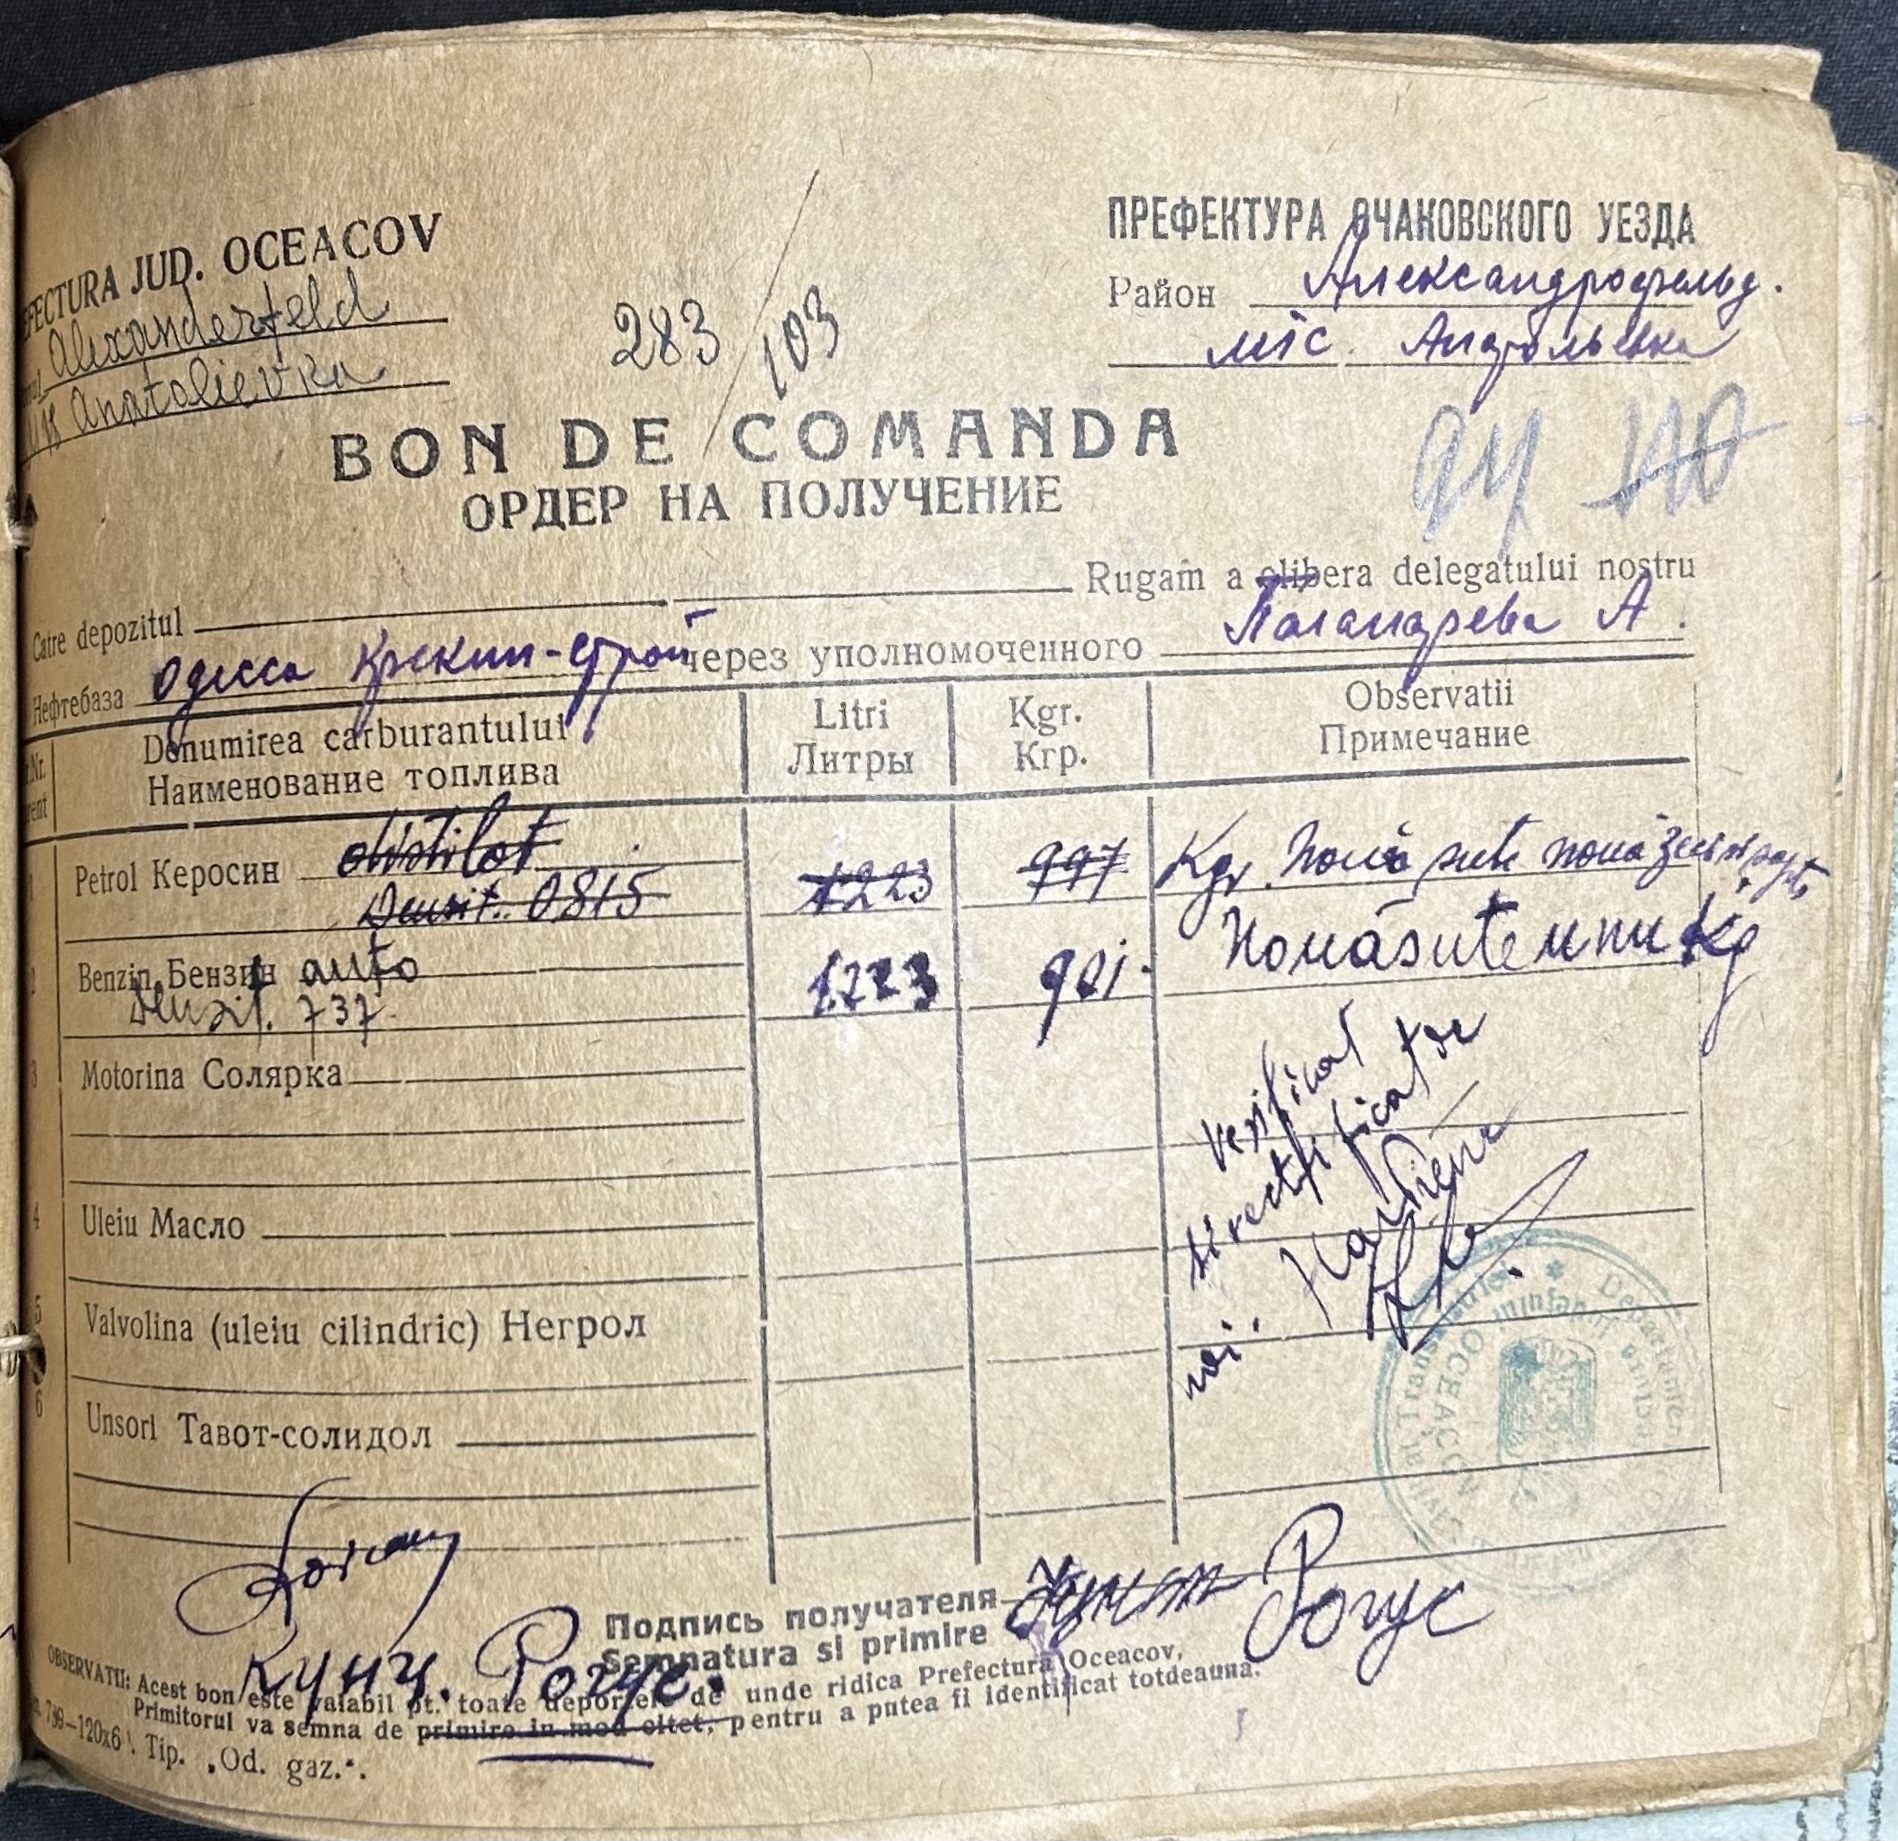 EFECTURA JUD. OCEACOV
Alexanderfeld
Anatolievka
283/103
ПРЕФЕКТУРА ОЧАКОВСКОГО УЕЗДА
Район Александрофельд.
міс.
BON DE COMANDA
ОРДЕР НА ПОЛУЧЕНИЕ
94 110
Catre depozitul Rugam a elibera delegatului nostru
Нефтебаза Одесса Крекин-строй через уполномоченного А.
Nr. Denumirea carburantului Litri Kgr. Observatii
Наименование топлива Литры Кгр. Примечание
1 Petrol Керосин distilat 1223 997 Kgr. Nouă sute nouăzeci șapte
Densit. 0815
2 Benzin Бензин auto 1223 901 Nouăsute unu Kg
Densit. 737
3 Motorina Солярка
verificat
si rectificat de
noi.
4 Uleiu Масло
5 Valvolina (uleiu cilindric) Негрол
6 Unsori Тавот-солидол
OCEACOV
Подпись получателя
Semnatura si primire Рогус
Кунч. Рогус.
OBSERVATII: Acest bon este valabil pt. toate depozitele de unde ridica Prefectura Oceacov,
Primitorul va semna de primire in mod citet, pentru a putea fi identificat totdeauna.
799—120x6 Tip. „Od. gaz.".